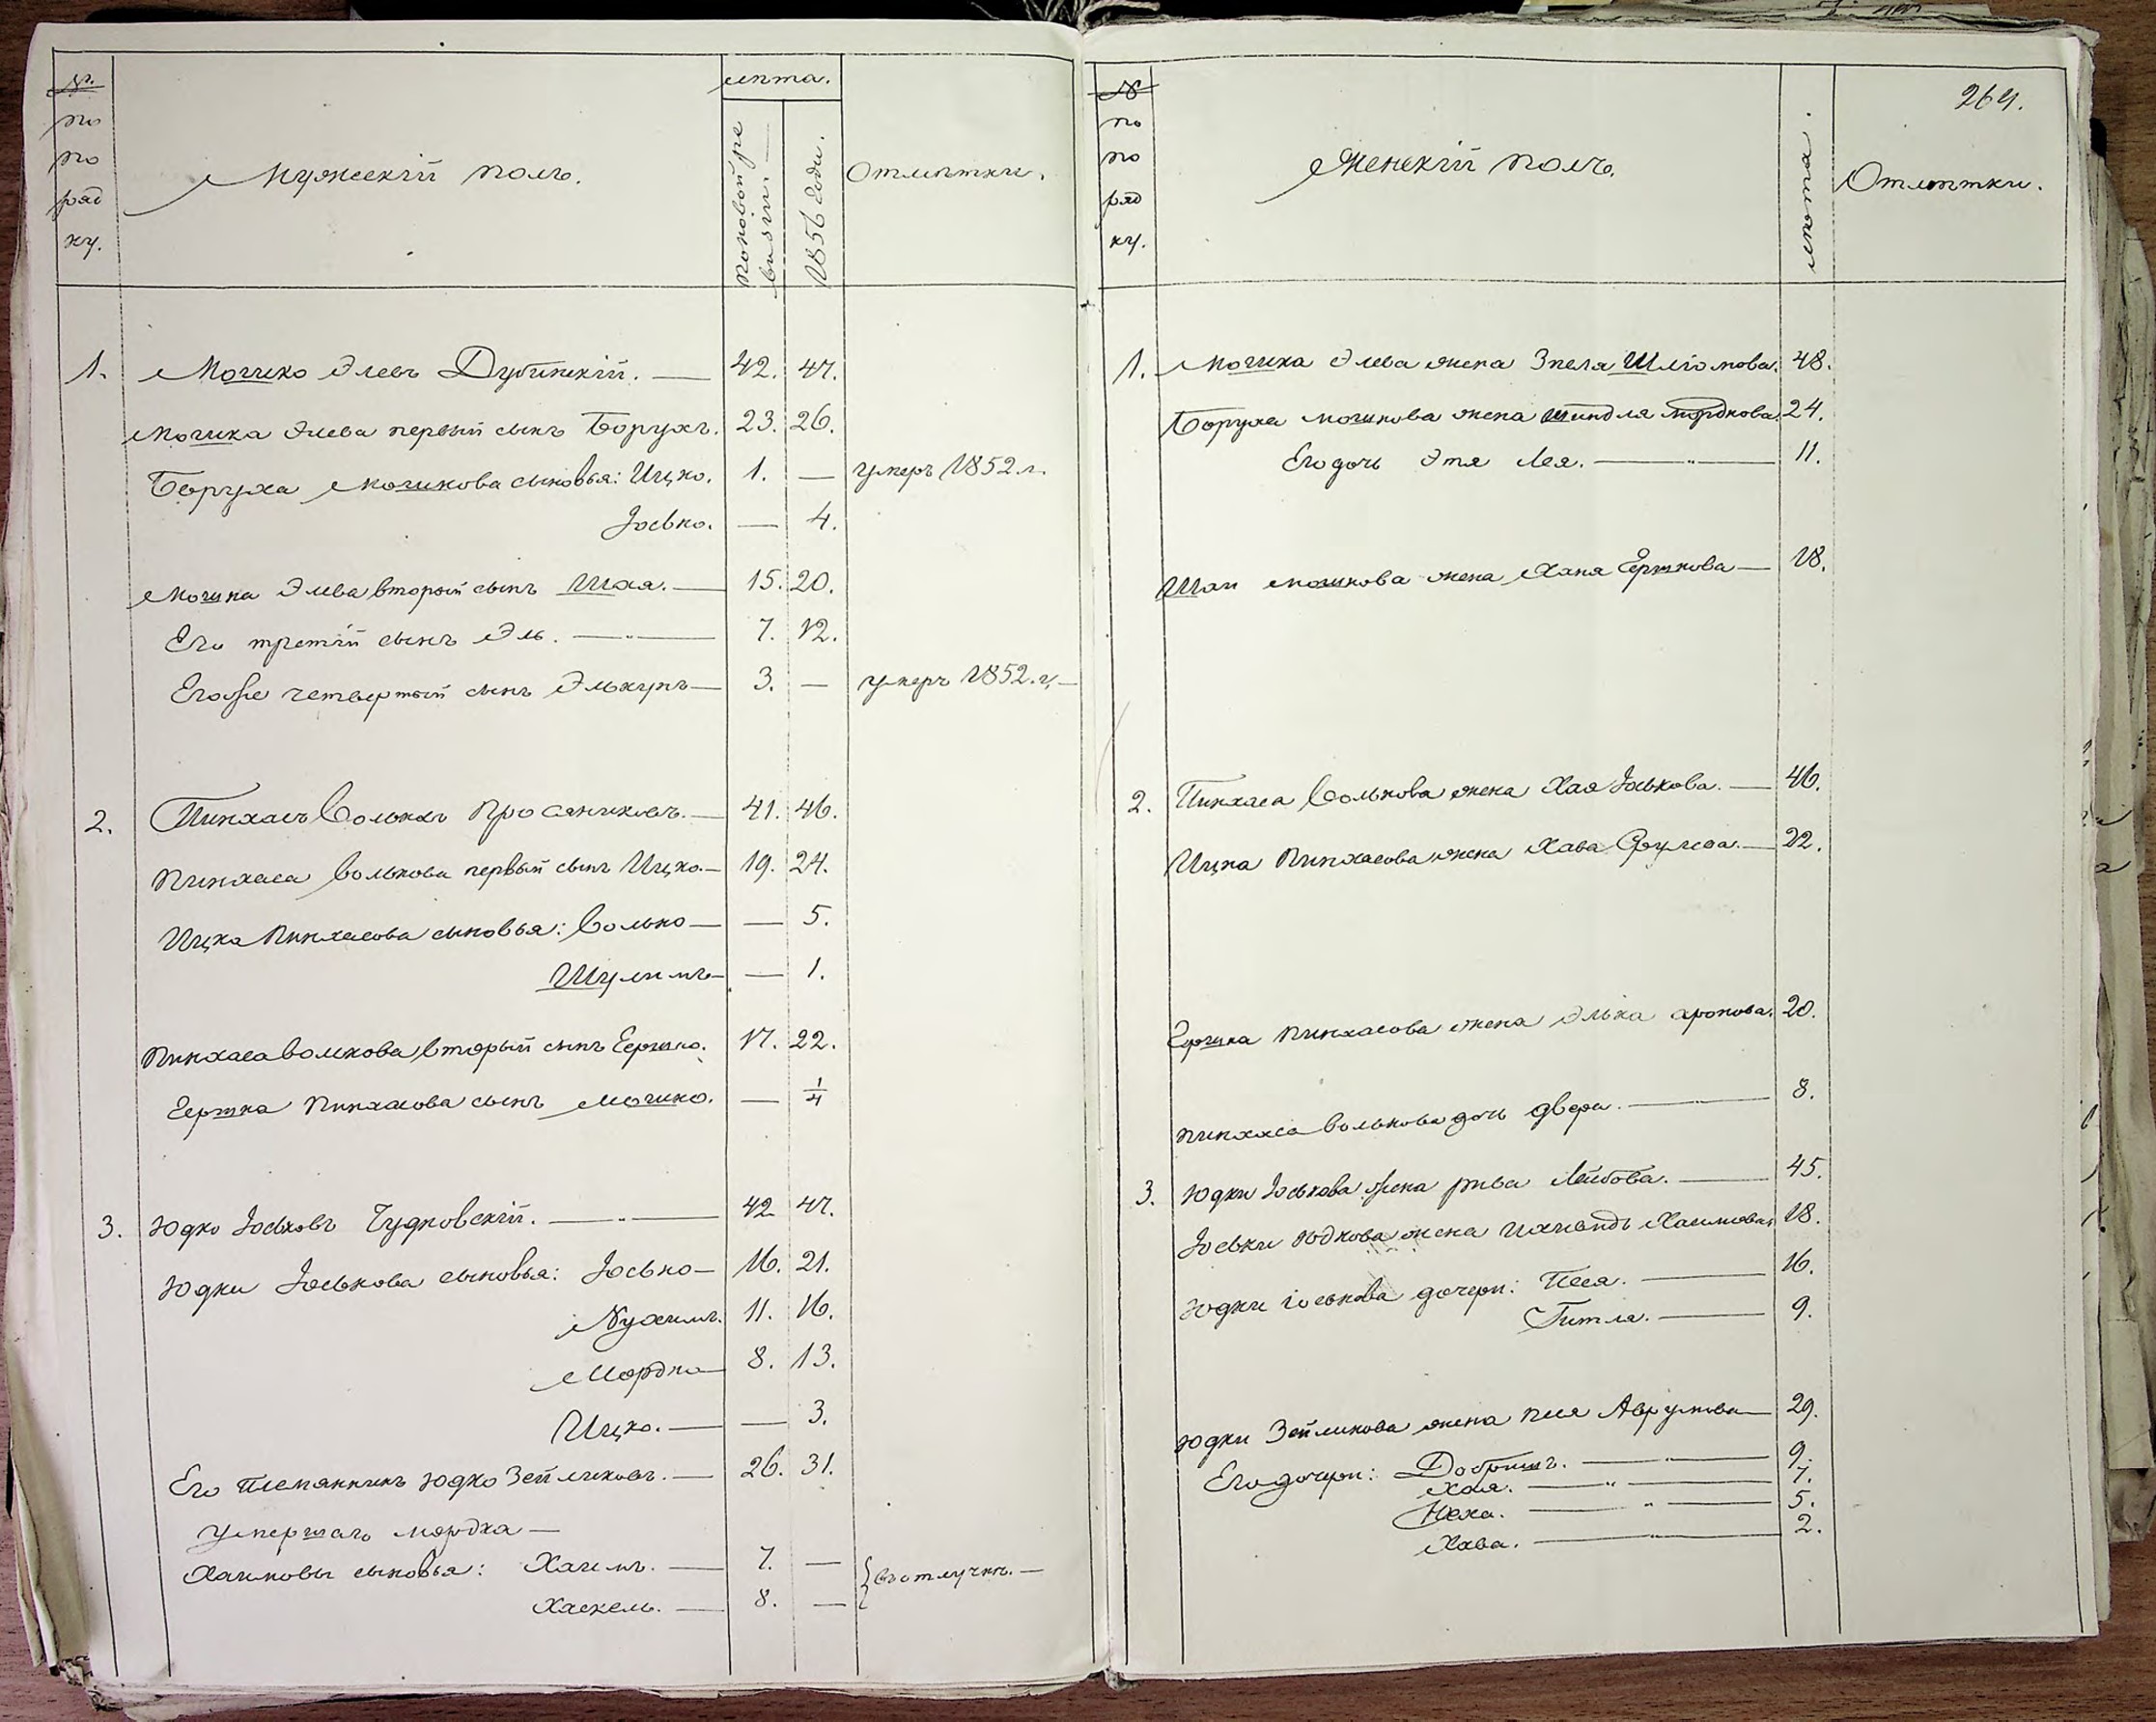 №
по
по
ряд
ку.
Мужескій полъ.
лѣта.
По новой ре
визіи.
1856 года.
Отмѣтки.
1. Мошко Элевъ Дубинскій. — 42. 47.
Мошка Элева первый сынъ Борухъ. 23. 26.
Боруха Мошкова сыновья: Ицко. 1. — умеръ 1852 г.
Іосько. — 4.
Мошка Элева второй сынъ Шая. — 15. 20.
Его третій сынъ Эль. — 7. 12.
Его же четвертый сынъ — 3. — умеръ 1852 г. —
2. Пинхасъ Вольковъ Просяниковъ. — 41. 46.
Пинхаса Волькова первый сынъ Ицко. — 19. 24.
Ицка Пинхасова сыновья: Волько — — 5.
Шулимъ — — 1.
Пинхаса Волькова вторый сынъ Гершко. 17. 22.
Гершка Пинхасова сынъ Мошко. — 1/4
3. Юдко Іоськовъ Чудновскій. — 42 47.
Юдки Іоськова сыновья: Іосько — 16. 21.
Нухимъ. 11. 16.
Мордко — 8. 13.
Ицко. — — 3.
Его племянникъ Юдко Зейликовъ. — 26. 31.
Умершаго Мордка —
Хаимовы сыновья: Хаимъ. — 7. —
Хаскель. — 8. —
въ отлучкѣ. —
№
по
по
ряд
ку.
Женскій полъ.
лѣта.
264.
Отмѣтки.
1. Мошка Элева жена Шліомова. 48.
Боруха Мошкова жена Шиндля Мордкова. 24.
Его дочь Этя Лея. — 11.
Шаи Мошкова жена Ханя Гершкова — 18.
2. Пинхаса Волькова жена Хая Іоськова. — 46.
Ицка Пинхасова жена Хава — 22.
Гершка Пинхасова жена Элька Аронова. 20.
Пинхаса Волькова дочь Двера. — 8.
3. Юдки Іоськова жена Рива Лейбова. — 45.
Іоськи Юдкова жена Хаимова. 18.
Юдки Іоськова дочери: Песя. — 16.
Гитля. — 9.
Юдки Зейликова жена Песя Аврумова — 29.
Его дочери: Добришъ. — 9.
Хая. — 7.
Неха. — 5.
Хава. — 2.